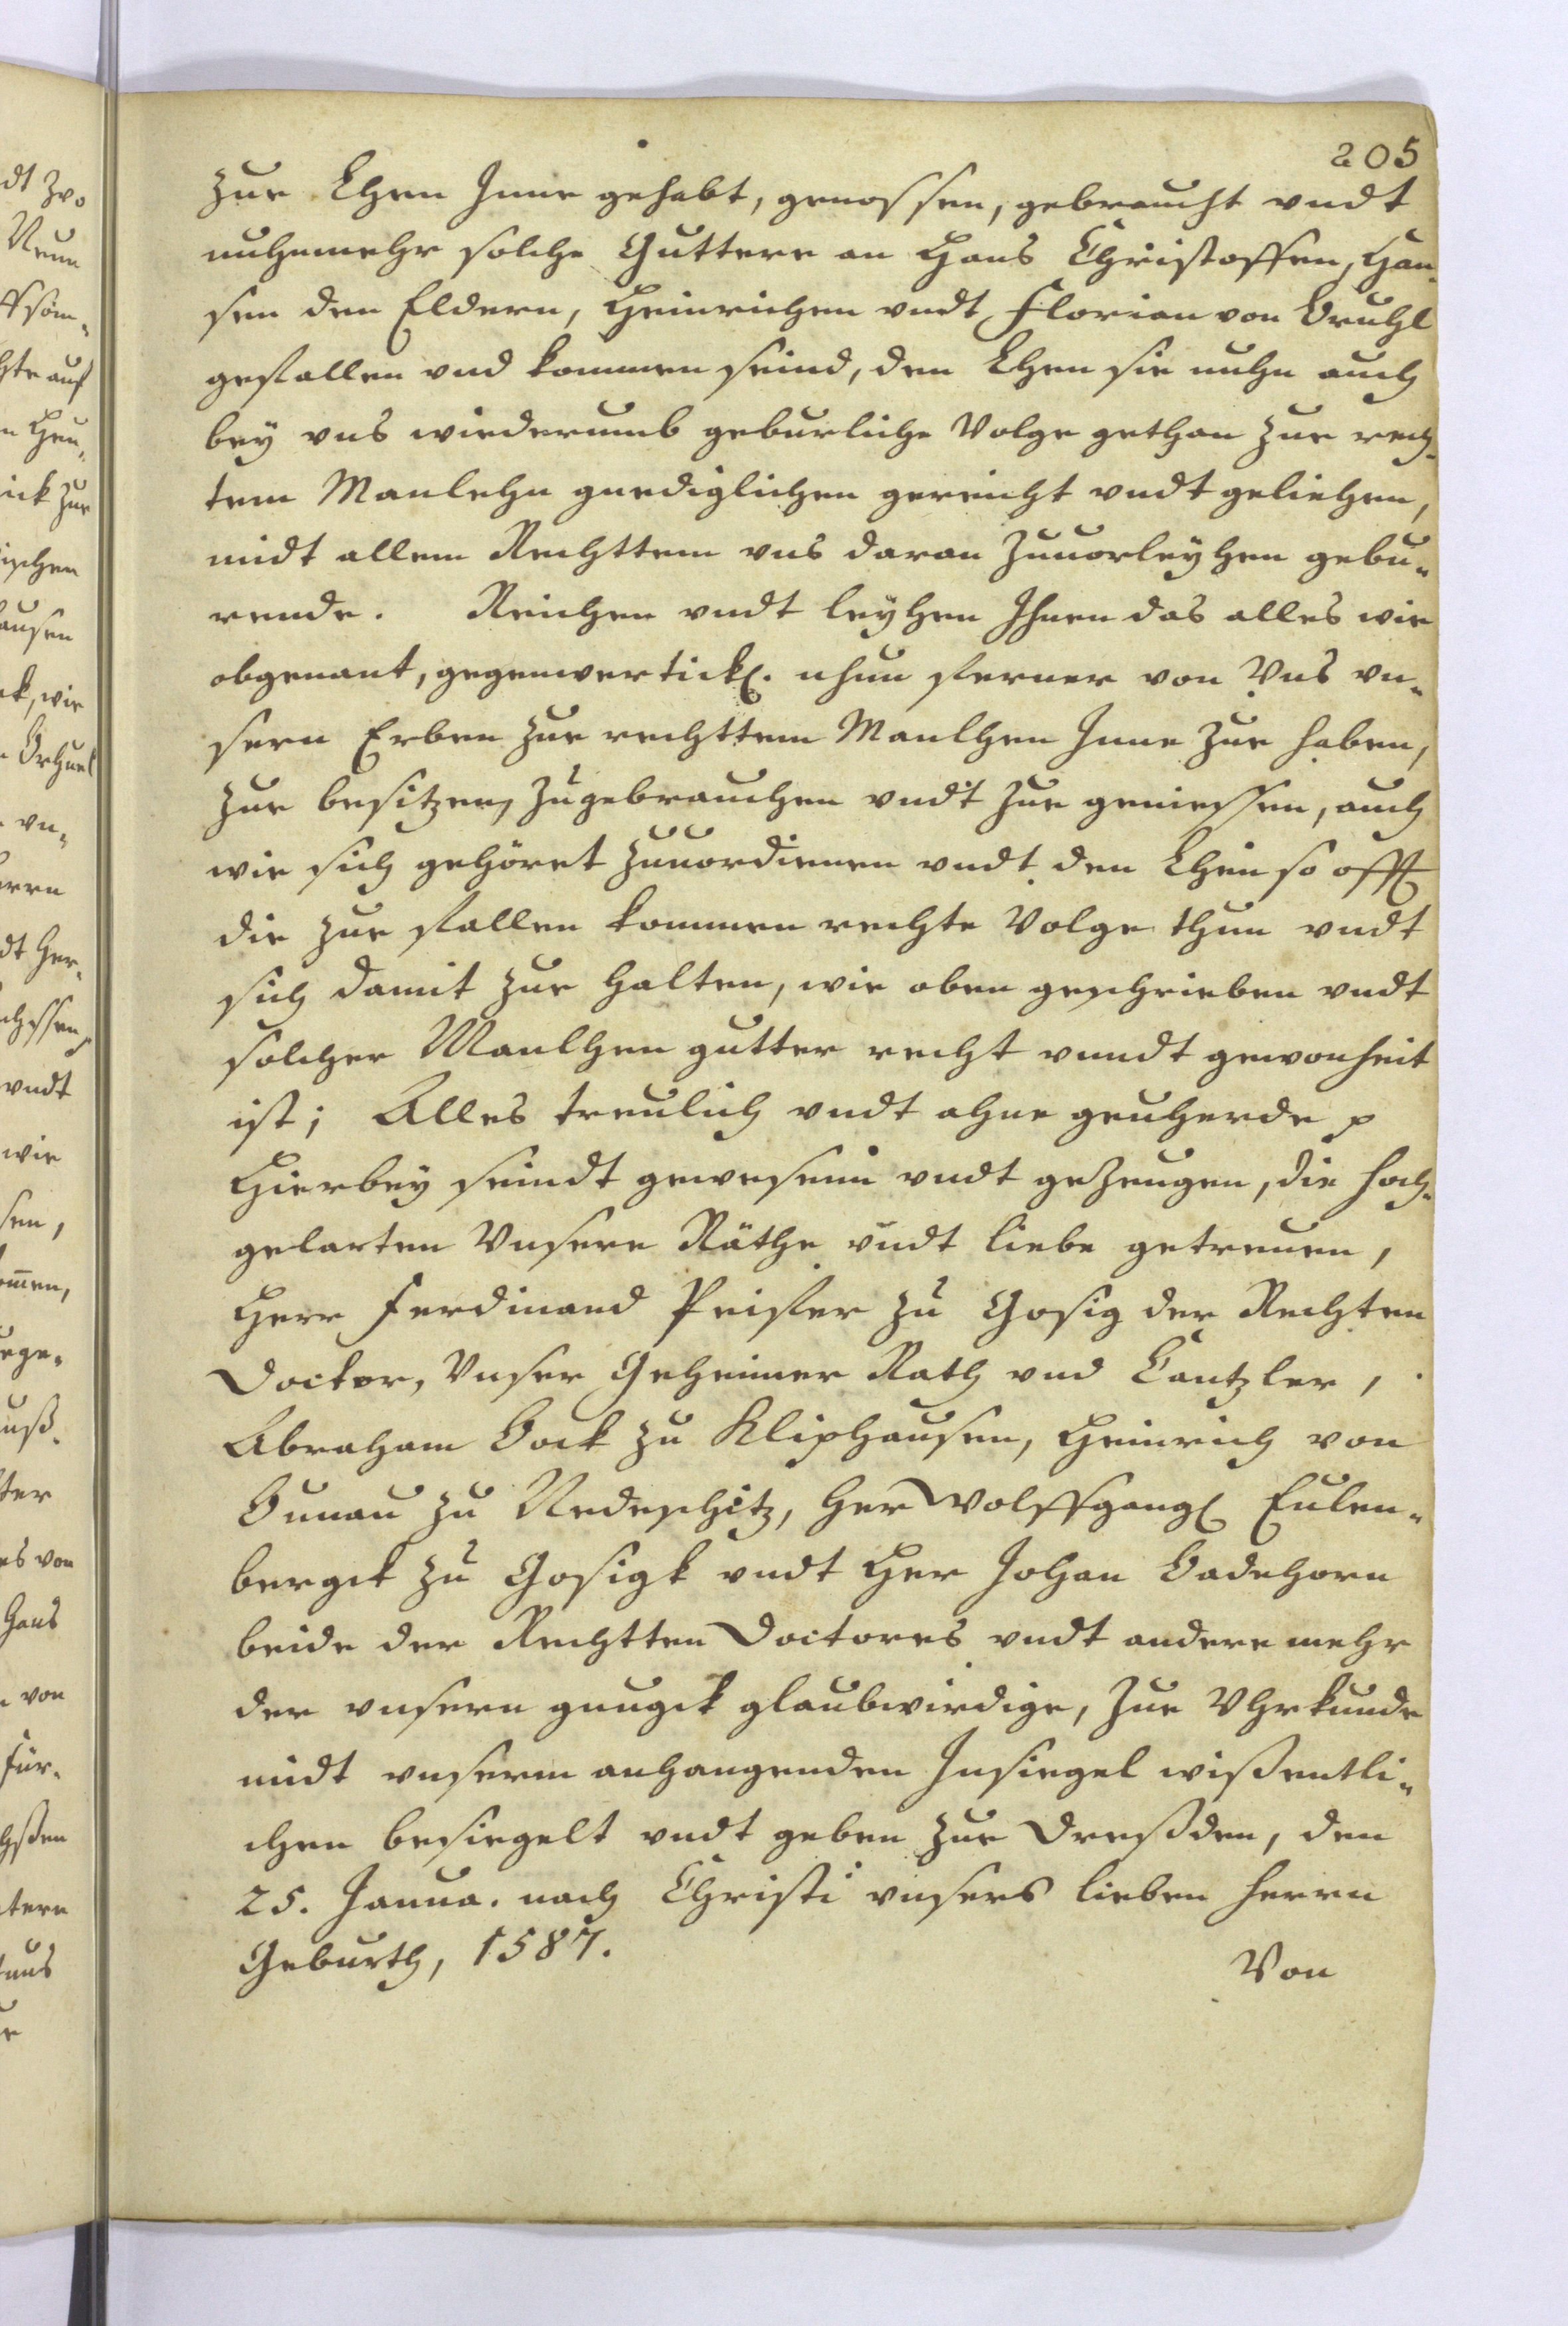 205
zue Lhen Inne gehabt, genossen, gebraucht vndt
nuhemehr solche Guttere an Hans Christoffen, Han-
sen den Eldern, Heinrichen vndt Florian von Druhl
gefallen vnd kommen seind, den Lhen sie nuhn auch
bey vns wiederumb geburliche Volge gethan zue rech-
tem Manlehn gnediglichen gereicht vndt geliehen,
midt allem Rechttem vns daran zuuorleyhen gebu-
rende. Reichen vndt leyhen Ihnen das alles wie
obgenant, gegenwertickl. nhun ferner von Vns vn-
sern Erben zue rechttem Manlhen Inne zue haben,
zue besitzen, zugebrauchen vndt zue geniessen, auch
wie sich gehöret zuuordienen vndt den Lhen so offt
die zue fallen kommen rechte Volge thun vndt
sich damit zue halten, wie oben geschrieben vndt
solcher Manlhen gutter recht vnndt gewonheit
ist; Alles treulich vndt ahne geuherde p
Hierbey seindt gewesenn vndt gezeugen, die hoch-
gelarten Vnsere Räthe vndt liebe getreuen,
Herr Ferdinand Peister zu Gosig der Rechten
Doctor, Vnser Geheimer Rath vnd Cantzler,
Abraham Bock zu Kliphausen, Heinrich von
Bunau zu Nedeschitz, Her Wolffgangl Eulen-
bergck zu Gosigk vndt Her Johan Badehorn
beide der Rechtten Doctores vndt andere mehr
der vnsern gnugck glaubwirdige, zue Vhrkunde
midt vnserm anhangenden Insiegel wißentli-
chen besiegelt vndt geben zue Dreßden, den
25. Janua. nach Christi vnsers lieben Herrn
Geburth, 1587.
Von